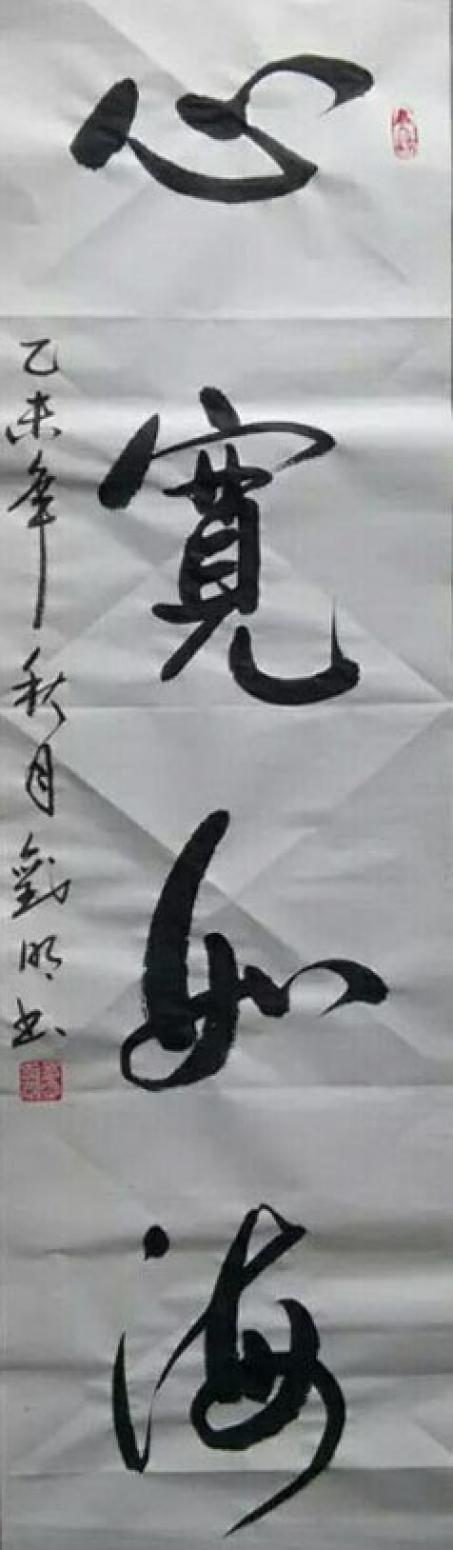 心寬如海
乙未年秋月劉明书